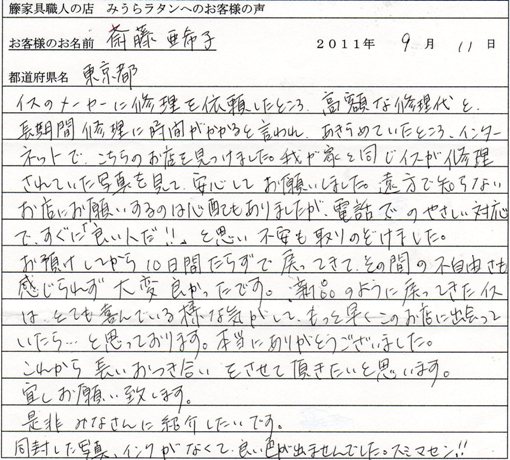 籐家具職人の店　みうらラタンへのお客様の声
お客様のお名前　斎藤 亜希子　２０１１年　９　月　１１　日
都道府県名　東京都
イスのメーカーに修理を依頼したところ、高額な修理代と、
長期間修理に時間がかかると言われ、あきらめていたところ、インター
ネットで、こちらのお店を見つけました。我が家と同じイスが修理
されていた写真を見て、安心してお願いしました。遠方で知らない
お店にお願いするのは心配でもありましたが、電話でのやさしい対応
で、すぐに「良い人だ!!」と思い不安も取りのぞけました。
お預けしてから10日間たらずで戻ってきて、その間の不自由さも
感じられず大変良かったです。新品のように戻ってきたイス
は、とても喜んでいる様な気がして、もっと早くこのお店に出会って
いたら…と思っております。本当にありがとうございました。
これから長いおつき合いをさせて頂きたいと思います。
宜しお願い致します。
是非みなさんに紹介したいです。
同封した写真、インクがなくて、良い色が出ませんでした。スミマセン!!